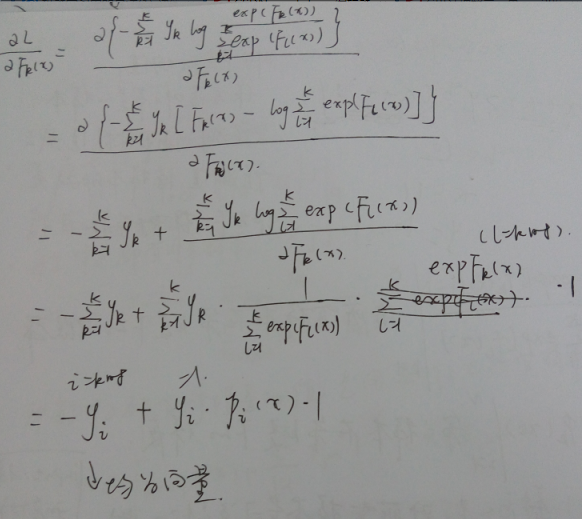 ∂L/∂F_k(x) = ∂{-∑_{k=1}^{K} y_k log exp(F_k(x))/∑_{l=1}^{K} exp(F_l(x))}/∂F_k(x)
= ∂{-∑_{k=1}^{K} y_k [F_k(x) - log∑_{l=1}^{K} exp(F_l(x))]}/∂F_k(x).
= -∑_{k=1}^{K} y_k + ∑_{k=1}^{K} y_k log∑_{l=1}^{K} exp(F_l(x))/∂F_k(x).
(l=k时)
= -∑_{k=1}^{K} y_k + ∑_{k=1}^{K} y_k · 1/∑_{l=1}^{K} exp(F_l(x)) · exp F_k(x) · 1
i=k时 =1.
= -y_i + y_i · p_i(x) · 1
↓均为向量.